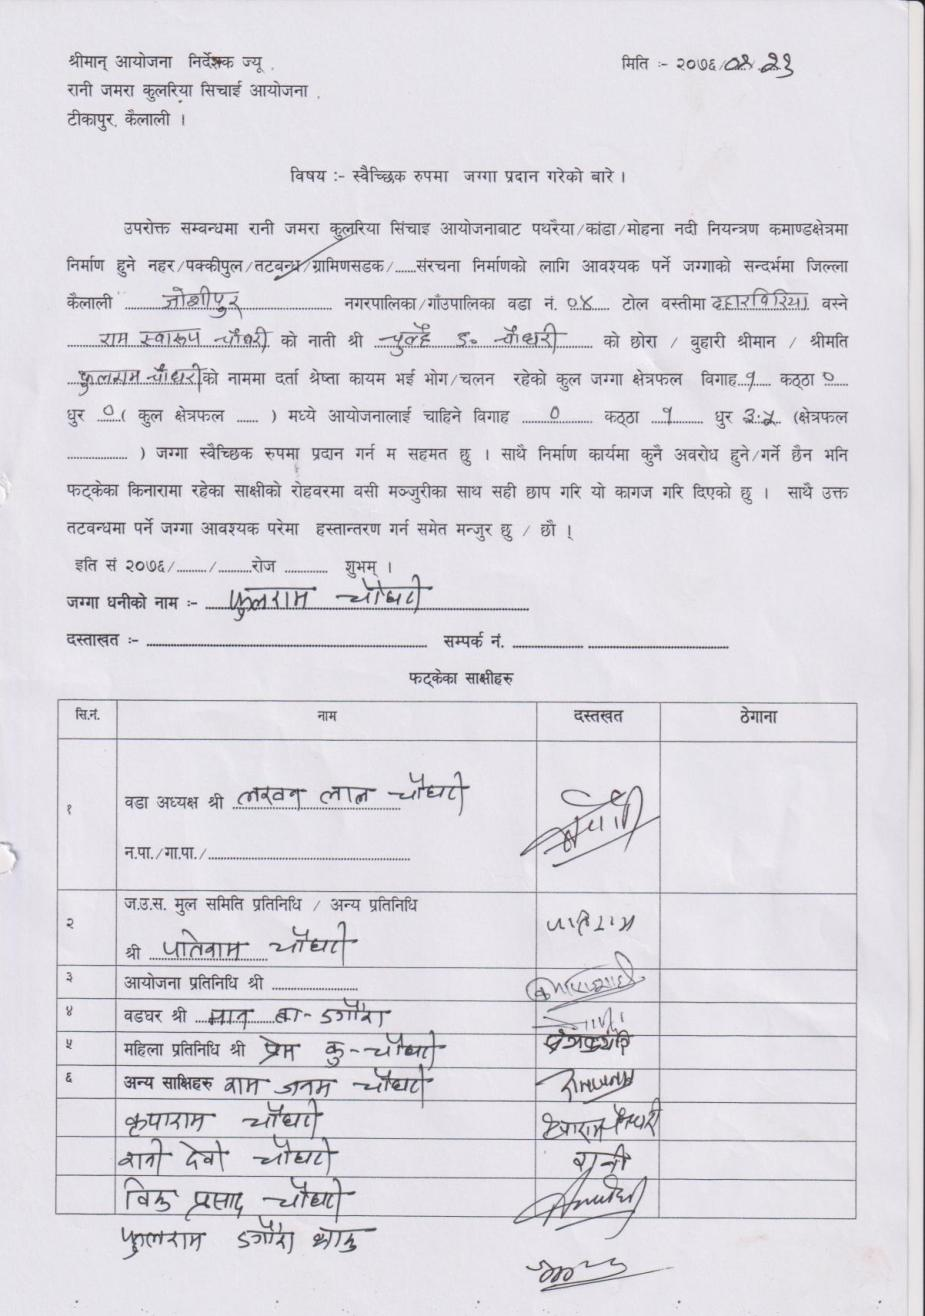 श्रीमान् आयोजना निर्देशक ज्यू
मिति :- २०७६/०२/२३
रानी जमरा कुलरिया सिचाई आयोजना
टीकापुर, कैलाली ।
विषय :- स्वैच्छिक रुपमा जग्गा प्रदान गरेको बारे ।
उपरोक्त सम्बन्धमा रानी जमरा कुलरिया सिंचाइ आयोजनावाट पथरैया/कांडा/मोहना नदी नियन्त्रण कमाण्डक्षेत्रमा
निर्माण हुने नहर/पक्कीपुल/तटबन्ध/ग्रामिणसडक/......संरचना निर्माणको लागि आवश्यक पर्ने जग्गाको सन्दर्भमा जिल्ला
कैलाली जोशीपुर नगरपालिका/गाँउपालिका वडा नं. ०४ टोल वस्तीमा वस्ने
राम स्वारूप चौधरी को नाती श्री चुल्हे ड. चौधरी को छोरा / बुहारी श्रीमान / श्रीमति
फुलराम चौधरी को नाममा दर्ता श्रेष्ता कायम भई भोग/चलन रहेको कुल जग्गा क्षेत्रफल विगाह १ कठ्ठा ०
धुर ० ( कुल क्षेत्रफल ...... ) मध्ये आयोजनालाई चाहिने विगाह ० कठ्ठा १ धुर (क्षेत्रफल
................ ) जग्गा स्वैच्छिक रुपमा प्रदान गर्न म सहमत छु । साथै निर्माण कार्यमा कुनै अवरोध हुने/गर्ने छैन भनि
फट्केका किनारामा रहेका साक्षीको रोहवरमा वसी मञ्जुरीका साथ सही छाप गरि यो कागज गरि दिएको छु । साथै उक्त
तटवन्धमा पर्ने जग्गा आवश्यक परेमा हस्तान्तरण गर्न समेत मन्जुर छु / छौ ।
इति सं २०७६/........./.........रोज ............ शुभम् ।
जग्गा धनीको नाम :- फुलराम चौधरी
दस्ताखत :- ................ सम्पर्क नं. ................
फट्केका साक्षीहरु
सि.नं. नाम दस्तखत ठेगाना
१ वडा अध्यक्ष श्री लखन लाल चौधरी
न.पा./गा.पा./................
२ ज.उ.स. मुल समिति प्रतिनिधि / अन्य प्रतिनिधि
श्री पतिराम चौधरी पतिराम
३ आयोजना प्रतिनिधि श्री ................
४ वडघर श्री मान ब. डगौरा
५ महिला प्रतिनिधि श्री प्रेम कु. चौधरी
६ अन्य साक्षिहरु राम जनम चौधरी रामजनम
कृपाराम चौधरी कृपाराम चौधरी
रानी देवी चौधरी रानी
प्रसाद चौधरी
फुलराम डगौरा थारु